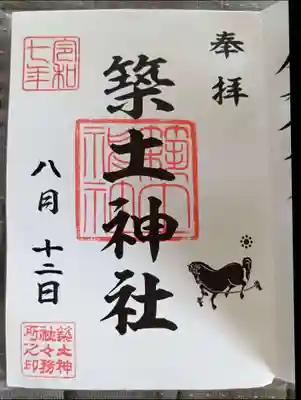 奉拝
築土神社
令和
七年
八月 十二日
築土神
社々務
所之印